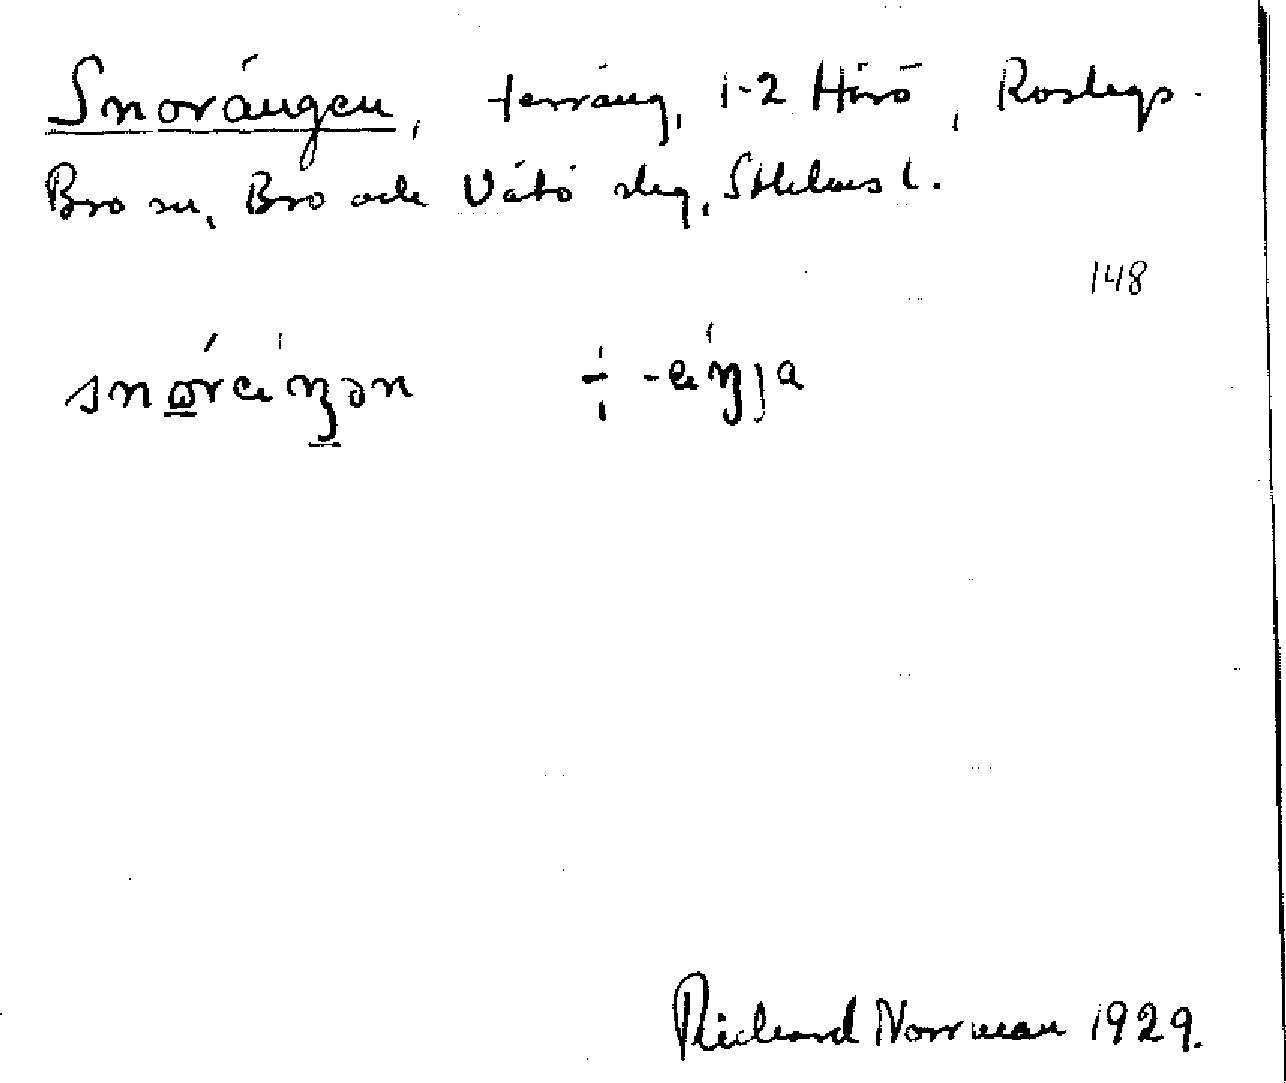 Snorängen, terräng, 1-2 Härö, Roslags-
Bro sn, Bro och Vätö skg, Sthlms l.
148
÷
Richard Norrman 1929.